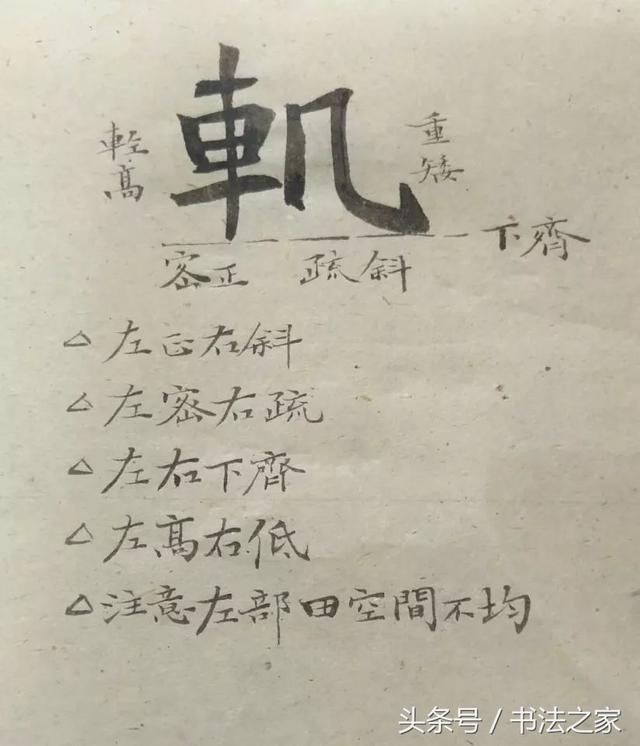 軌
輕高
重矮
下齊
密正 疏斜
△左正右斜
△左密右疏
△左右下齊
△左高右低
△注意左部田空間不均
头条号／书法之家